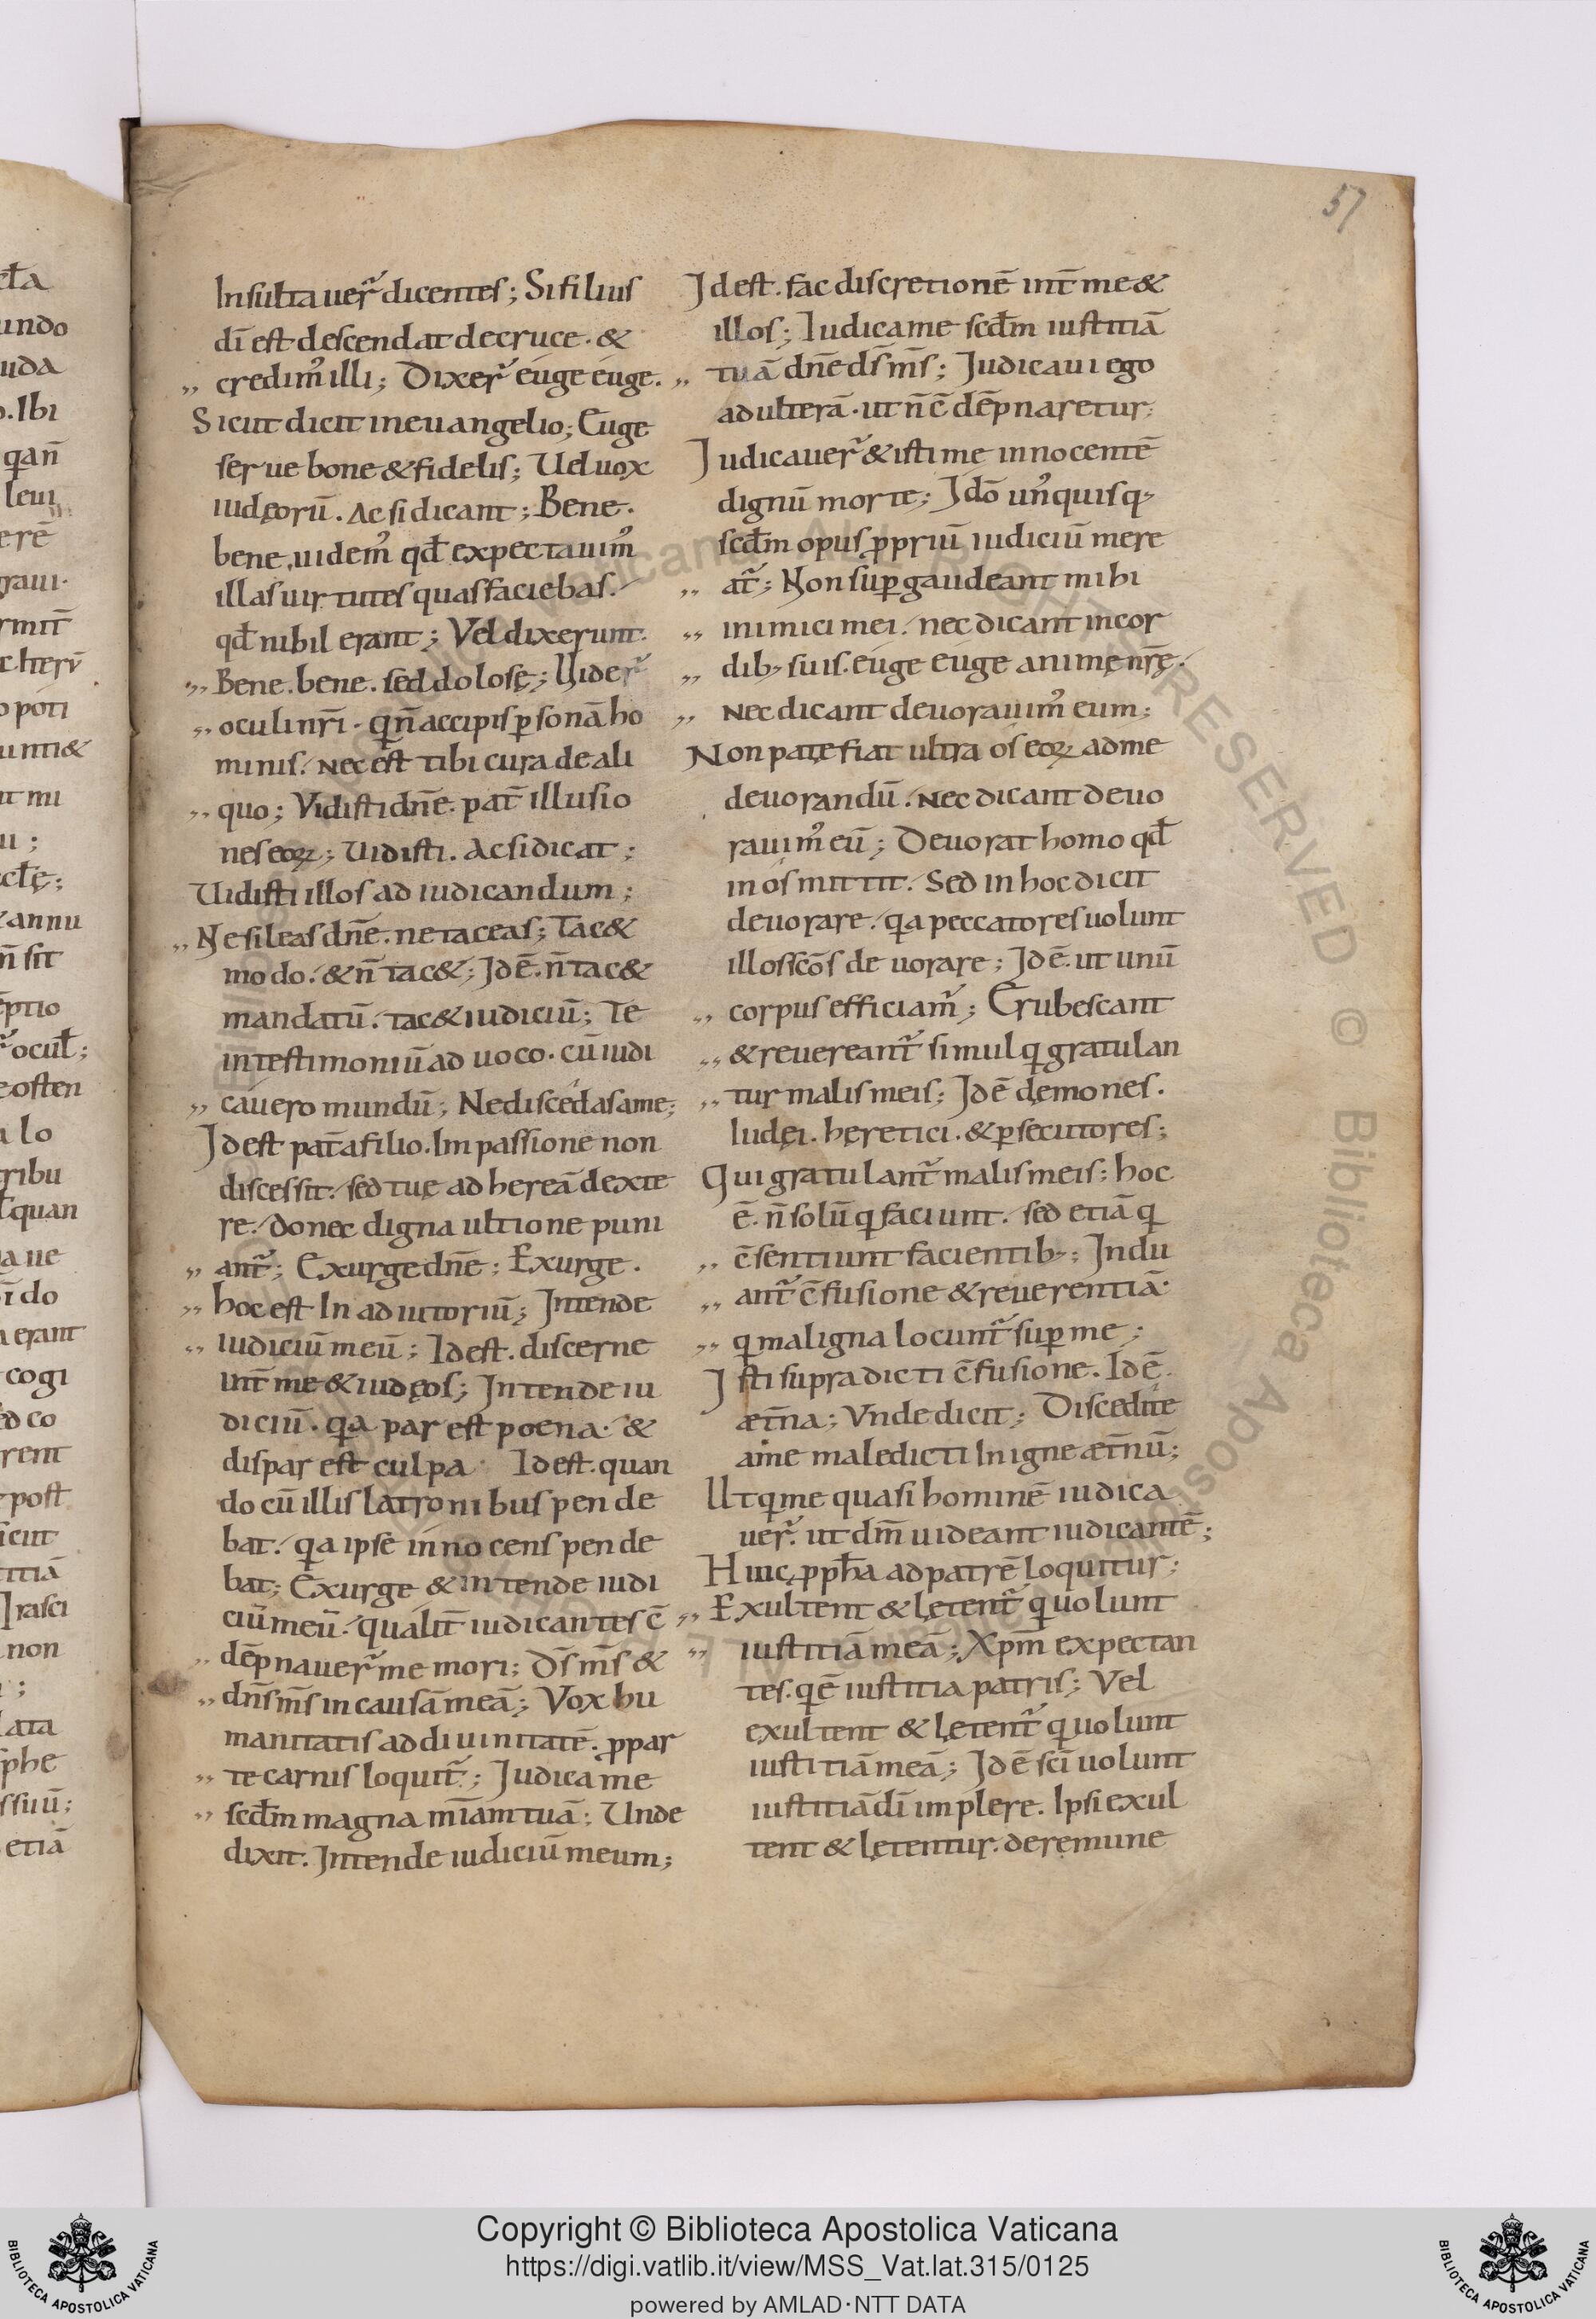 57
Insultauer̄ dicentes; Si filius
dī est descendat de cruce. &
„ credim᾽ illi; Dixer̄ euge euge.
Sicut dicit in euangelio; Euge
serue bone & fidelis; Vel uox
iudęorū. Ac si dicant; Bene.
bene uidem᾽ qđ expectauim᾽
illas uirtutes quas faciebas.
qđ nihil erant; Vel dixerunt.
„ Bene. bene. sed dolosę; Uider̄
„ oculi nr̄i. qn̄ accipis psonā ho
minis. nec est tibi cura de ali
„ quo; Vidisti dn̄e. pat̄ illusio
nes eoꝝ; Uidisti. Ac si dicat;
Uidisti illos ad iudicandum;
„ Ne sileas dn̄e. ne taceas; Tac&
modo. & n̄ tac&; Id ē. n̄ tac&
mandatū. tac& iudiciū; Te
in testimoniū aduoco. cū iudi
„ cauero mundū; Ne discedas a me;
Id est pat̄ a filio. Im passione non
discessit. sed tuę adhereā dexte
re. donec digna ultione puni
„ ant᷑; Exurge dn̄e; Exurge.
„ hoc est In adiutoriū; Intende
„ iudiciū meū; Id est. discerne
int̄ me & iudęos; Intende iu
diciū. qa par est poena. &
dispar est culpa. Id est. quan
do cū illis latronibus pende
bat. qa ipse innocens pende
bat; Exurge & intende iudi
ciū meū. qualit̄ iudicantes c̄
„ dēpnauer̄ me mori; Ds̄ ms̄ &
„ dn̄s ms̄ in causā meā; Vox hu
manitatis ad diuinitatē. ꝓ par
„ te carnis loquit᷑; Iudica me
„ scđm magna mīam tuā; Unde
dixit. Intende iudiciū meum;
Id est. fac discretionē int̄ me &
illos; Iudica me scđm iustitiā
„ tuā dn̄e ds̄ ms̄; Iudicaui ego
adulterā. ut n̄ c̄dēpnaretur;
Iudicauer̄ & isti me innocentē
dignū morte; Idō un᾽quisq;
scđm opus ꝓpriū iudiciū mere
„ at᷑; Non sup gaudeant mihi
„ inimici mei. nec dicant in cor
„ dib; suis. euge euge animę nr̄ę.
„ nec dicant deuorauim᾽ eum;
Non patefiat ultra os eoꝝ ad me
deuorandū. nec dicant deuo
rauim᾽ eū; Deuorat homo qđ
in os mittit. Sed in hoc dicit
deuorare. qa peccatores uolunt
illos sc̄os deuorare; Id ē. ut unū
„ corpus efficiam᷑; Erubescant
„ & reuereant᷑ simul qi gratulan
„ tur malis meis; Id ē dęmones.
Iudęi. hęretici. & psecutores;
Qui gratulant᷑ malis meis; hoc
ē. n̄ solū qi faciunt. sed etiā qi
„ c̄sentiunt facientib;; Indu
„ ant᷑ c̄fusione & reuerentiā.
„ qi maligna locunt᷑ sup me;
Isti supradicti c̄fusione. Id ē.
ęt̄na; Vnde dicit; Discedite
a me maledicti In igne ęt̄nū;
Ut qi me quasi hominē iudica
uer̄. ut dm̄ uideant iudicantē;
Huic ꝓpħa ad patrē loquitur;
„ Exultent & lętent᷑ qi uolunt
„ iustitiā meā; Xpm̄ expectan
tes. qi ē iustitia patris; Vel
exultent & lętent᷑ qi uolunt
iustitiā meā; Id ē sc̄i uolunt
iustitiā dī implere. Ipsi exul
tent & lętentur. de remune
Copyright © Biblioteca Apostolica Vaticana
https://digi.vatlib.it/view/MSS_Vat.lat.315/0125
powered by AMLAD·NTT DATA
BIBLIOTECA APOSTOLICA VATICANA
BIBLIOTECA APOSTOLICA VATICANA